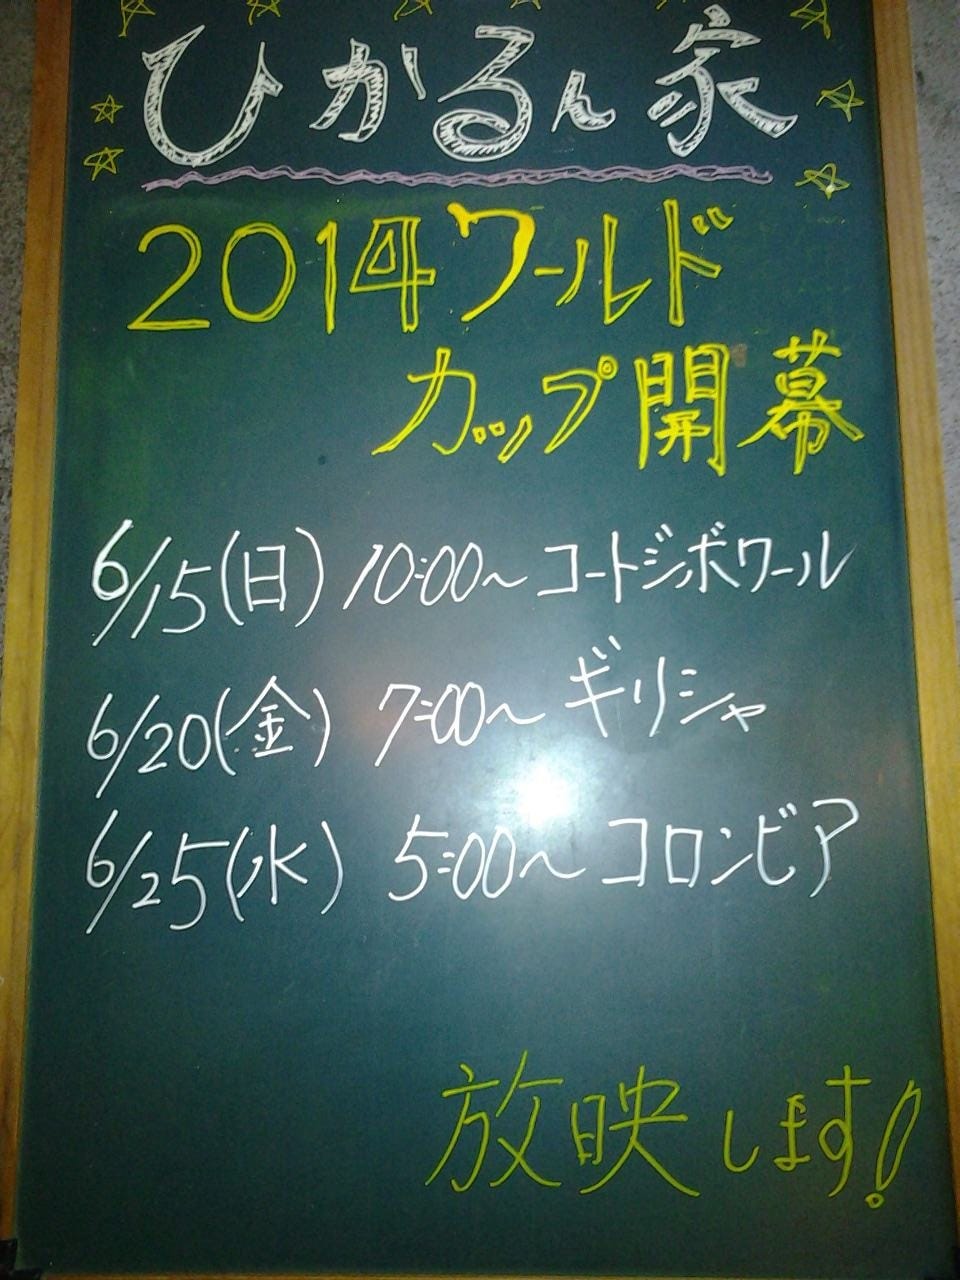 ひかるん家
2014ワールド
カップ開幕
6/15(日) 10:00〜コートジボワール
6/20(金) 7:00〜ギリシャ
6/25(水) 5:00〜コロンビア
放映します!